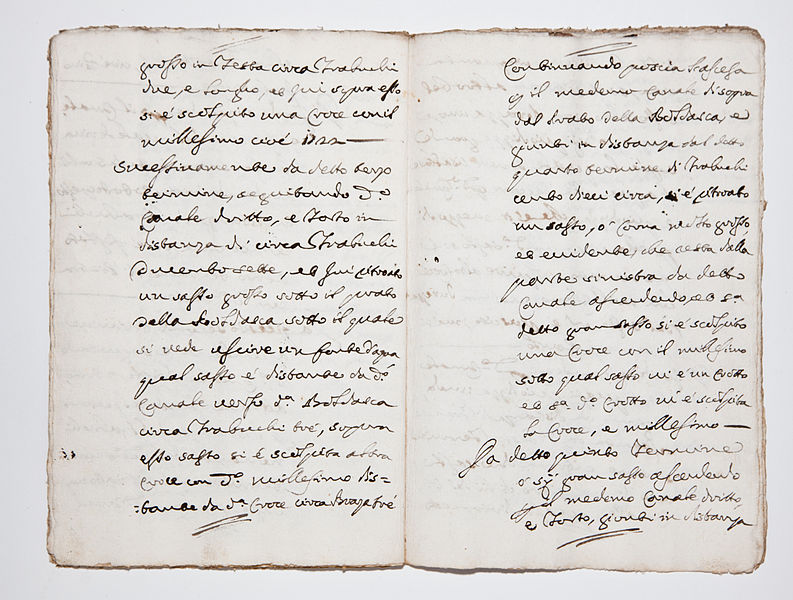 grosso in Testa circa Trabuchi
due, e longho, et qui sopra esso
si é scolpito una Croce con il
millesimo cioé 1722
Sucessivamente da detto terzo
termine, seguitando d.º
Canale dritto, e Torto in
distanza di circa Trabuchi
Ducento sette, et hui ritrovato
un sasso grosso sotto il prato
della Boldasca sotto il quale
si vede uscire un fonte d'aqua
qual sasso é distante da d.º
Canale verso d.ª Boldasca
circa Trabuchi tré, sopra
esso sasso si é scolpita altra
Croce con d.º millesimo dis=
=tante da d.ª Croce circa Braza tré
Continuando poscia l'ascesa
il medemo Canale di sopra
dal prato della Boldasca, e
gionti in distanza dal detto
quarto termine di Trabuchi
cento dieci circa, si é ritrovato
un sasso, o Corna molto grosso,
et evidente, che resta dalla
parte sinistra da detto
Canale ascendendo, et s.ª
detto gran sasso si é scolpito
una Croce con il millesimo
sotto qual sasso vi é un Crotto
et s.ª d.º Crotto vi é scolpita
la Croce, e millesimo
Da detto quinto Termine
o sij gran sasso ascendendo
pel medemo Canale dritto,
e Torto, gionti in distanza